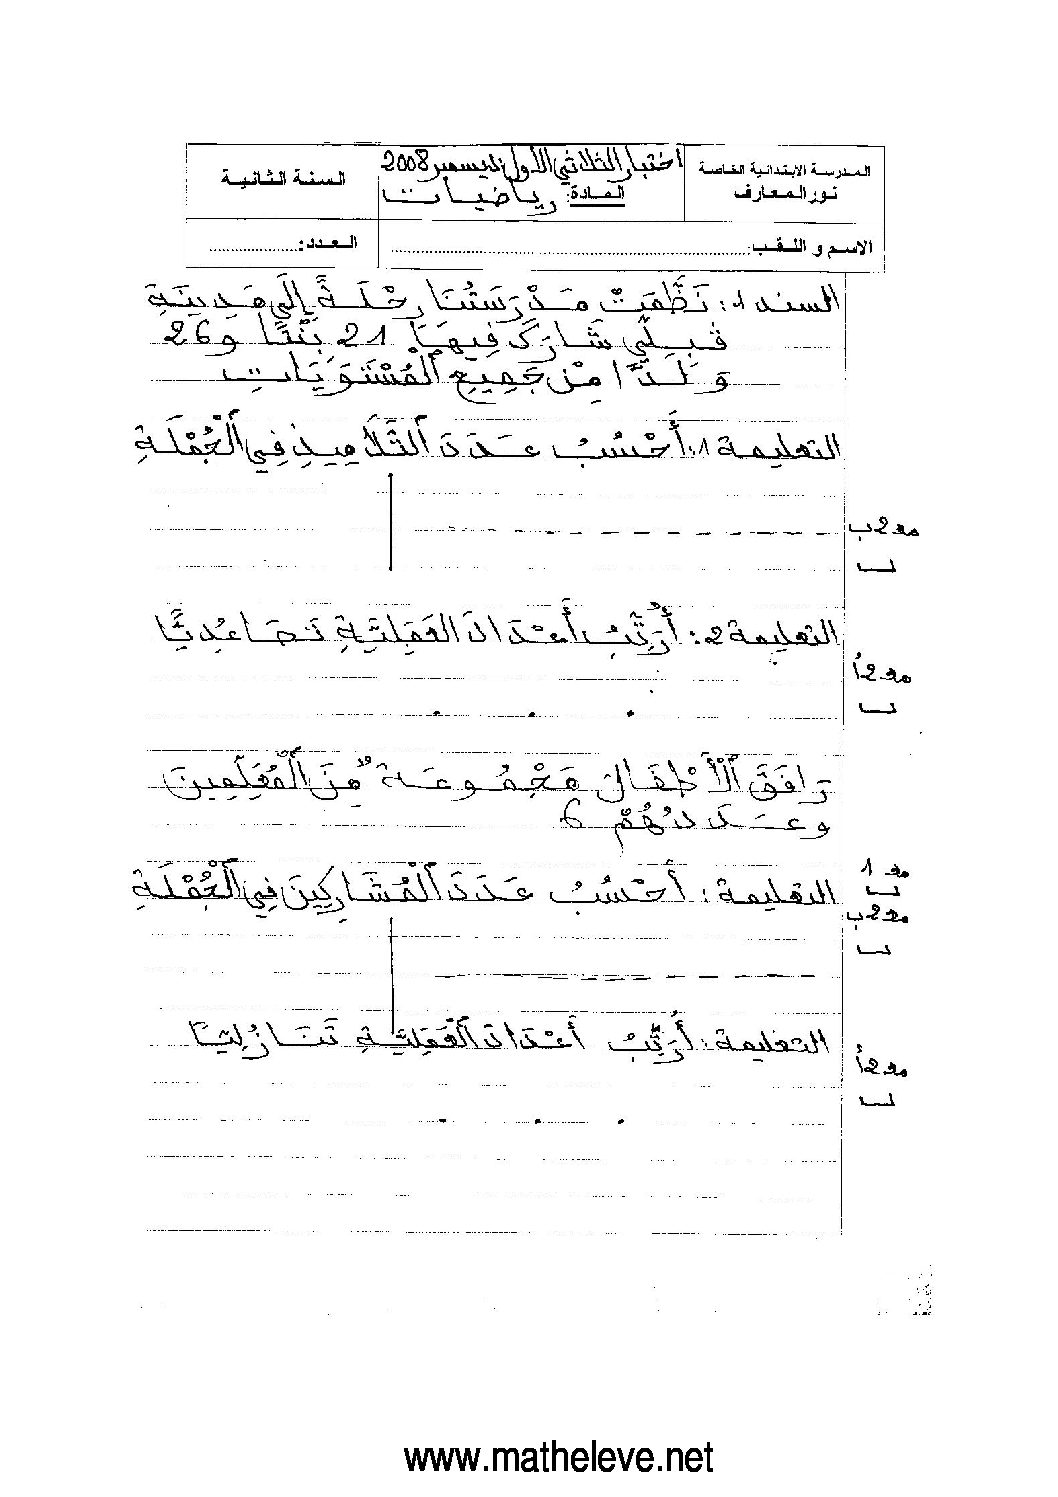 المدرسة الابتدائية الخاصة
نور المعارف
اختبار الثلاثي الأول ديسمبر 2008
المادة: رياضيات
السنة الثانية
الاسم و اللقب:
العدد:
السند 1: نَظَّمَتْ مَدْرَسَتُنَا رِحْلَةً إِلَى مَدِينَةِ
قِبِلِّي شَارَكَ فِيهَا 21 بِنْتًا و 26
وَلَدًا مِنْ جَمِيعِ الْمُسْتَوَيَاتِ
التعليمة 1: أَحْسُبُ عَدَدَ التَّلَامِيذِ فِي الْجُمْلَةِ
مع 2 ب
التعليمة 2: أُرَتِّبُ أَعْدَادَ العَمَلِيَّةِ تَصَاعُدِيًّا
مع 2 أ
رَافَقَ الْأَطْفَالَ مَجْمُوعَةٌ مِنَ الْمُعَلِّمِينَ
وعَدَدُهُمْ 6
التعليمة: أَحْسُبُ عَدَدَ الْمُشَارِكِينَ فِي الْجُمْلَةِ
مع 1
مع 2 ب
التعليمة: أُرَتِّبُ أَعْدَادَ العَمَلِيَّةِ تَنَازُلِيًّا
مع 2 أ
www.matheleve.net